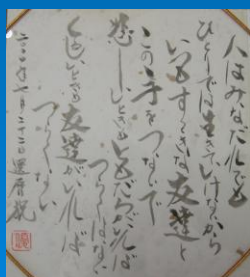 人はみなだれでも
ひとりでは生きていけないから
いつもすてきな友達と
この手をつないで
悲しいときもともだちがいれば
つらくはない
くるしいときも友達がいれば
つらくない